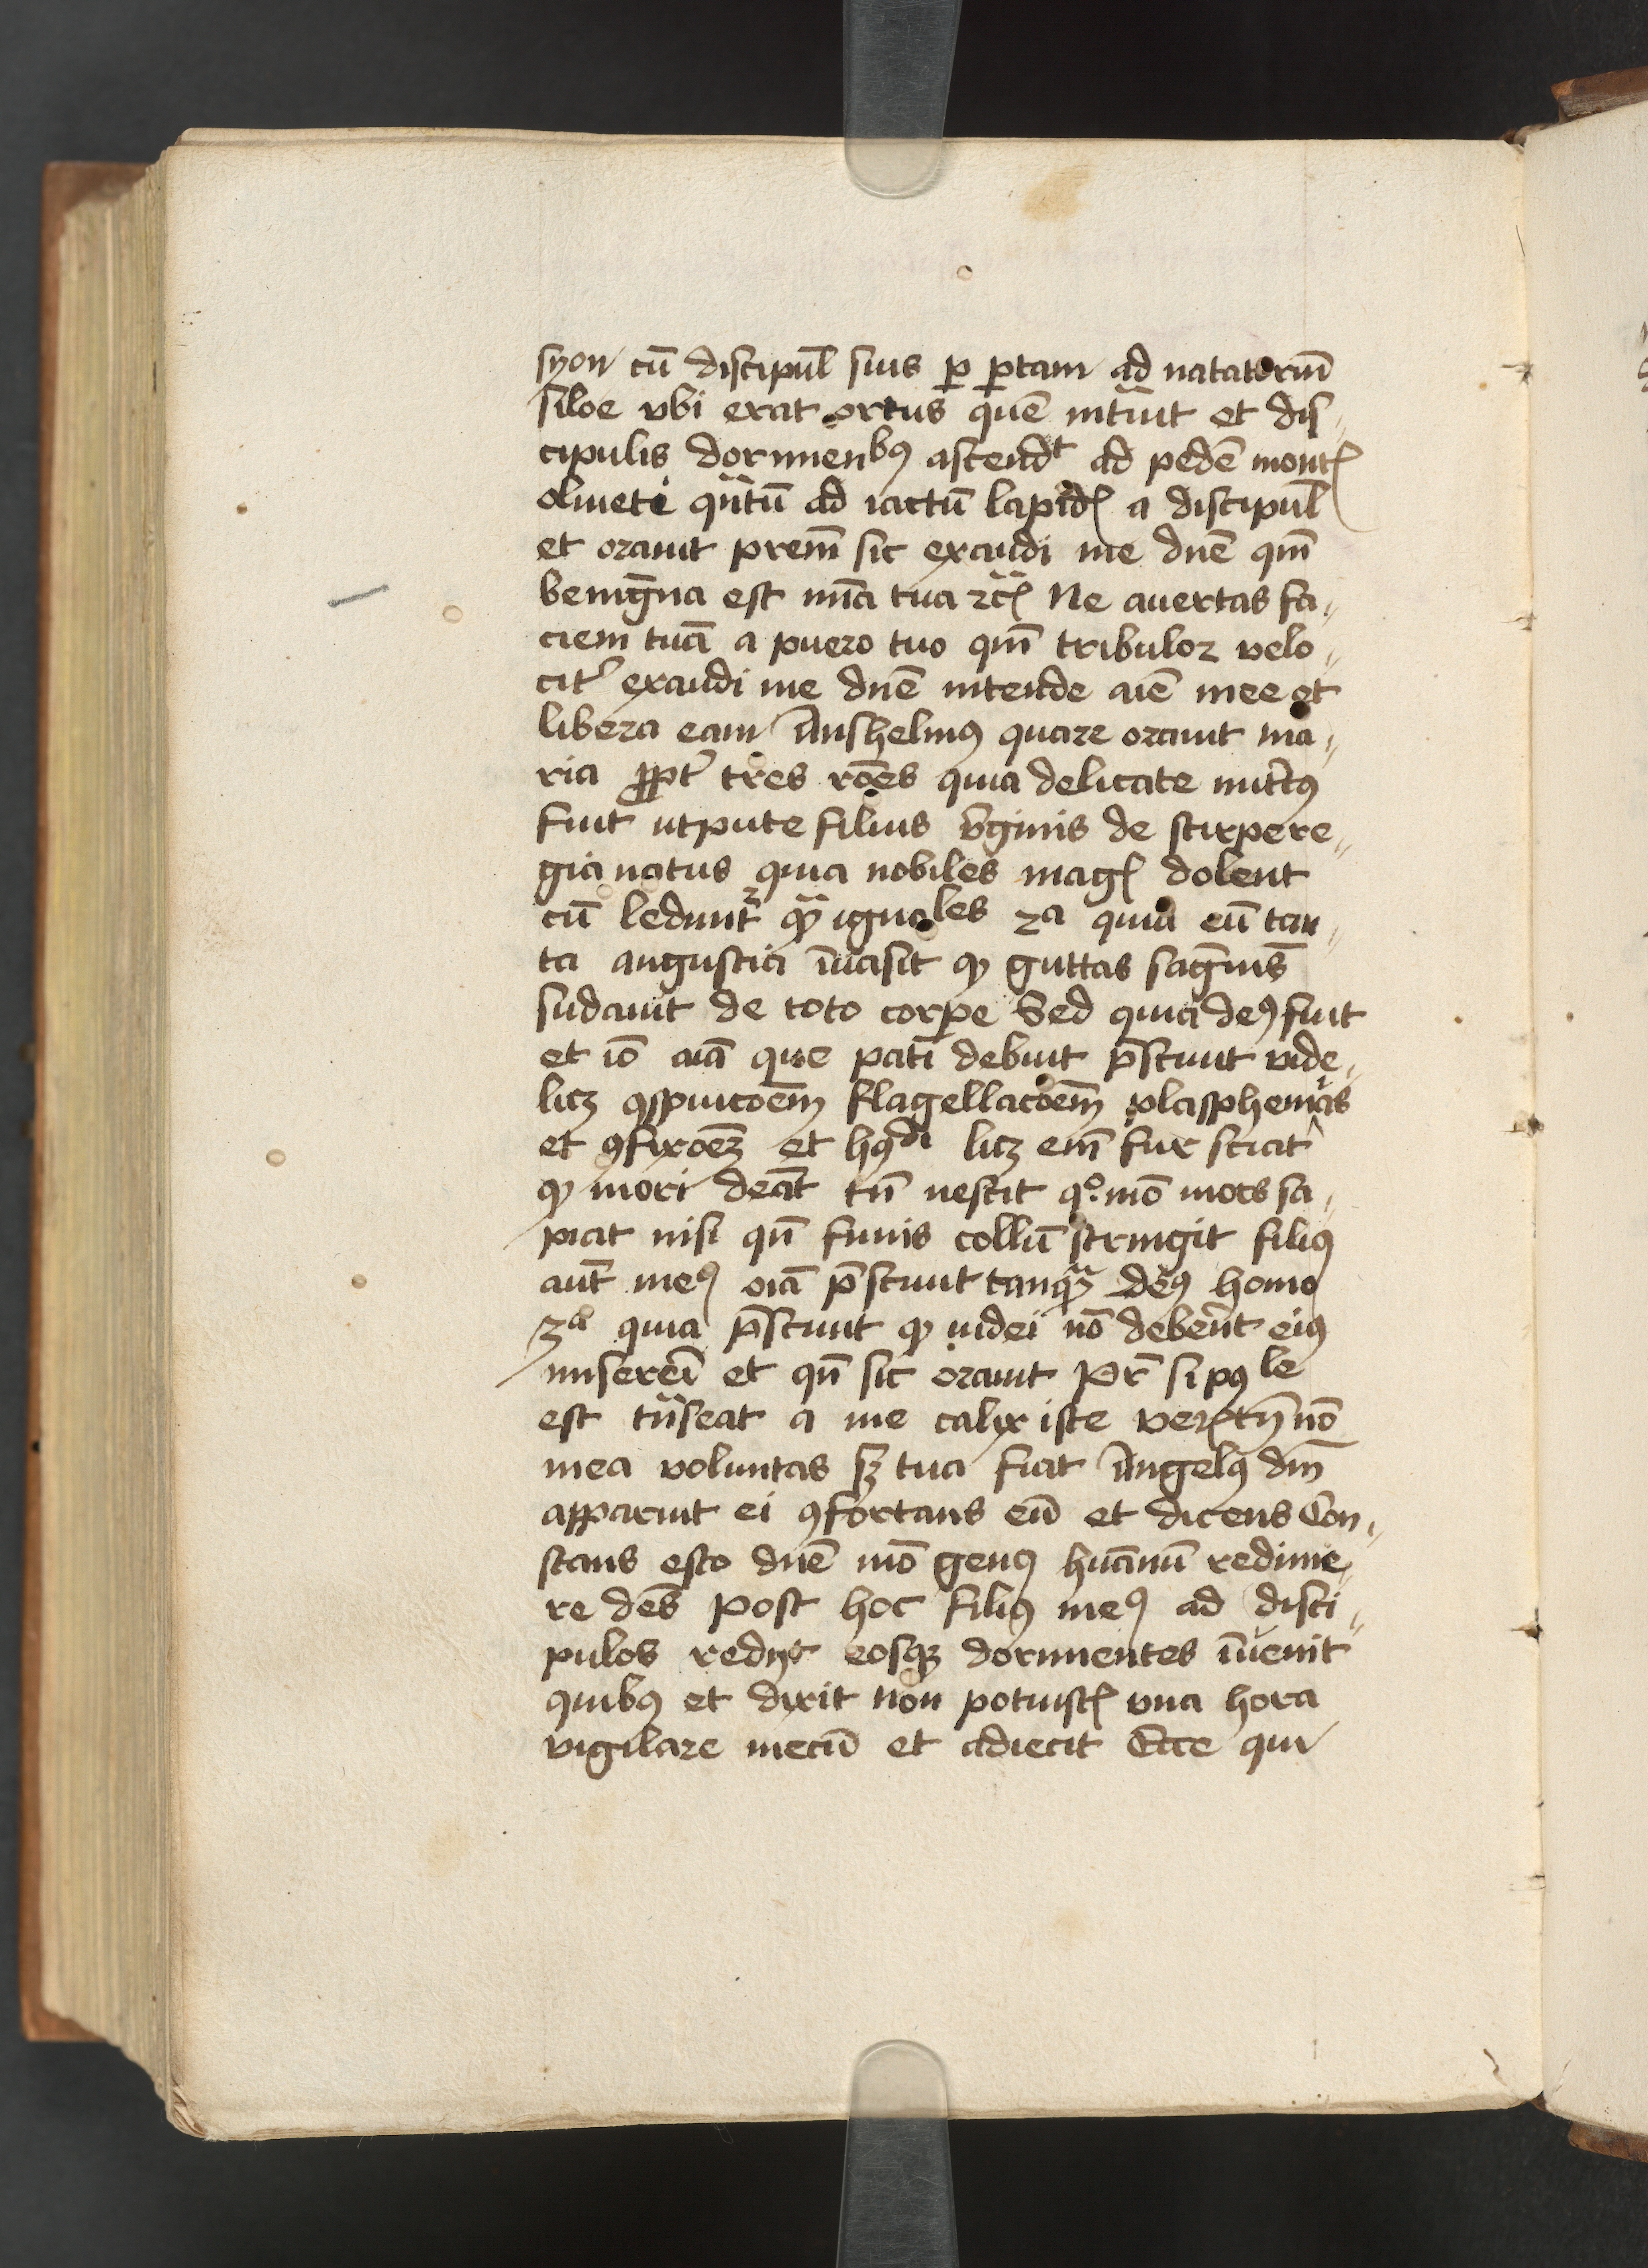 syon cū discipul̄ suis ꝑ ꝑtam ad natatoriū
siloe vbi erat ortus quē intᷓuit et dis⸗
cipulis dormienbꝰ ascendᵗ ad pedē montꝭ
oliueti qᷓntū ad iactū lapidꝭ a discipul̄
et orauit prem̄ sic exaudi me dn̄e qm̄
benigna est mīa tua ⁊cꝭ Ne auertas fa⸗
ciem tuā a puero tuo qm̄ tribulor velo⸗
cit᷑ exaudi me dn̄e intende aīe mee et
libera eam Anshelmꝰ quare orauit ma⸗
ria ꝓpt᷑ tres rōes quia delicate nutͥtꝰ
fuit utpute filius v̄ginis de stirpe re⸗
gia natus quia nobiles magꝭ dolent
cū leduntᷣ qᷓꝫ ignobiles 2ᵃ quia eū tan⸗
ta angustia īuasit ꝙ guttas sāgnīs
sudauit de toto corpe Sed quia deꝰ fuit
et iō oīa que pati debuit p̄sciuit vide⸗
licꝫ ꝯspuicoēm flagellacoēm plasphemias
et ꝯfixoēꝫ et hꝰᵈⁱ licꝫ em̄ fur sciat
ꝙ mori debeat tn̄ nescit qͦ mō mors sa⸗
piat nisi qn̄ funis collū stringit filiꝰ
aut̄ meꝰ oīa p̄sciuit tanqᷓꝫ deꝰ homo
3ᵃ quia p̄sciuit ꝙ iudei nō deberēt eiꝰ
misereri et qn̄ sic orauit Pr̄ si pꝰˡᵉ
est tᷓnseat a me calix iste verꝭtn̄ nō
mea voluntas sꝫ tua fiat Angelꝰ dn̄i
apparuit ei ꝯfortans eū et dicens Con⸗
stans esto dn̄e mō genꝰ huānū redime⸗
re dēs Post hoc filiꝰ meꝰ ad disci⸗
pulos redijt eosqꝫ dormientes īuenit
quibꝰ et dixit Non potuistꝭ vna hora
vigilare mecū et adiecit Ecce qui